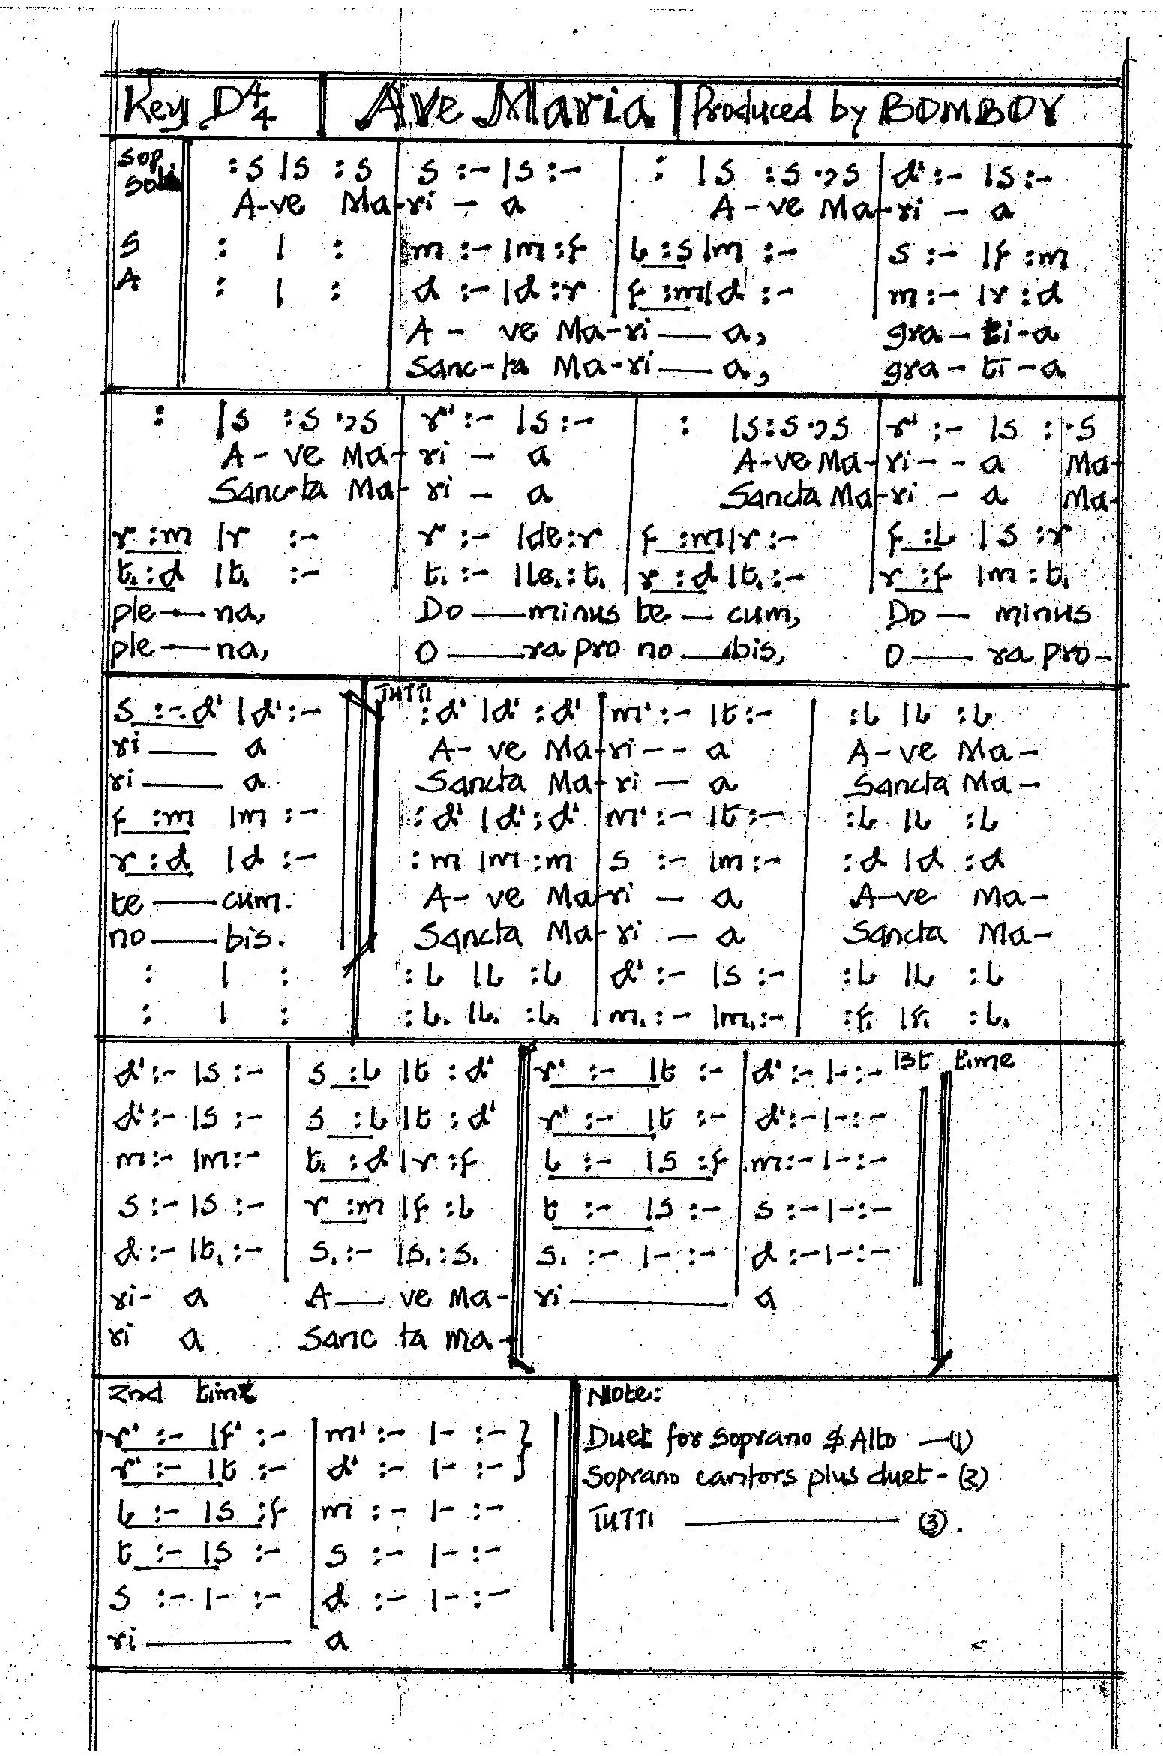 Key D 4/4 | Ave Maria | Produced by BOMBOY
Sop
Solo
:s |s :s | s :- |s :- | : |s :s .,s | d' :- |s :-
A-ve Ma-ri - a A-ve Ma-ri - a
S : | : | m :- |m :f | l :s |m :- | s :- |f :m
A : | : | d :- |d :r | f :m |d :- | m :- |r :d
A - ve Ma-ri — a, gra - ti-a
Sanc-ta Ma-ri — a, gra - ti - a
: |s :s .,s | r' :- |s :- | : |s :s .,s | r' :- |s : .s
A - ve Ma-ri - a A-ve Ma-ri - - a Ma-
Sanc-ta Ma-ri - a Sancta Ma-ri - a Ma-
r :m |r :- | r :- |de :r | f :m |r :- | f :l |s :r
t, :d |t, :- | t, :- |le, :t, | r :d |t, :- | r :f |m :t,
ple — na, Do — minus te — cum, Do — minus
ple — na, O — ra pro no — bis, O — ra pro-
TUTTI
s :-.d' |d' :- | :d' |d' :d' | m' :- |t :- | :l |l :l
ri — a A- ve Ma-ri - - a A-ve Ma-
ri — a Sancta Ma-ri - a Sancta Ma-
f :m |m :- | :d' |d' :d' | m' :- |t :- | :l |l :l
r :d |d :- | :m |m :m | s :- |m :- | :d |d :d
te — cum. A- ve Ma-ri - a A-ve Ma-
no — bis. Sancta Ma-ri - a Sancta Ma-
: | : | :l |l :l | d' :- |s :- | :l |l :l
: | : | :l, |l, :l, | m, :- |m, :- | :f, |f, :l,
1st time
d' :- |s :- | s :l |t :d' | r' :- |t :- | d' :- |- :-
d' :- |s :- | s :l |t :d' | r' :- |t :- | d' :- |- :-
m :- |m :- | t, :d |r :f | l :- |s :f | m :- |- :-
s :- |s :- | r :m |f :l | t :- |s :- | s :- |- :-
d :- |t, :- | s, :- |s, :s, | s, :- |- :- | d :- |- :-
ri- a A — ve Ma- ri — a
ri a Sanc ta ma-
2nd time
r' :- |f' :- | m' :- |- :- }
r' :- |t :- | d' :- |- :- }
l :- |s :f | m :- |- :-
t :- |s :- | s :- |- :-
s :- |- :- | d :- |- :-
ri — a
Note:
Duet for Soprano & Alto — (1)
Soprano cantors plus duet - (2)
TUTTI — (3).